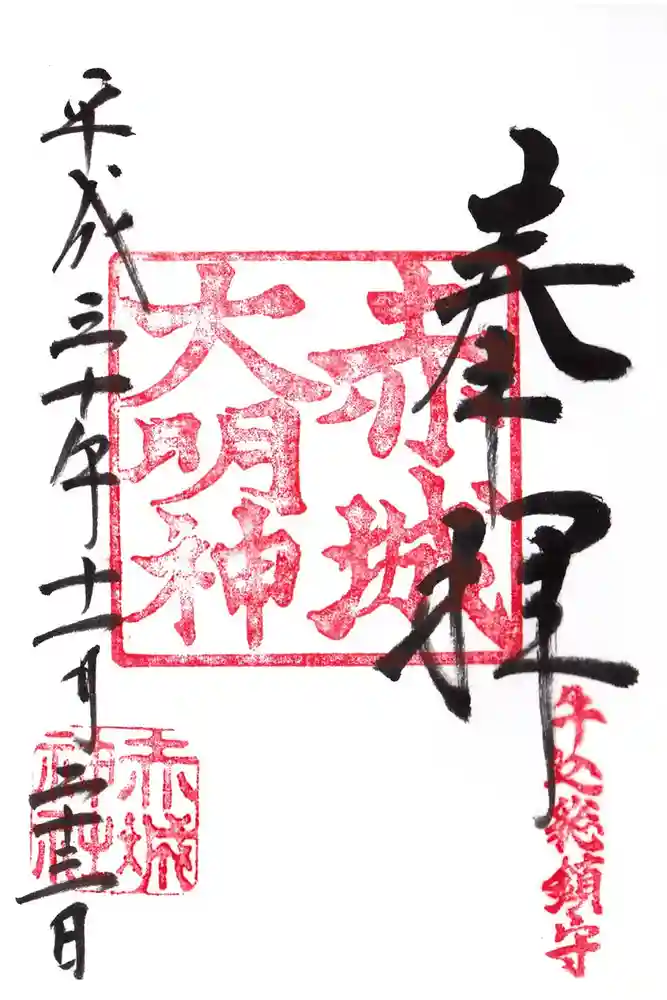 奉拝
牛込総鎮守
赤城
大明神
平成三十年十一月二十三日
赤城
神社